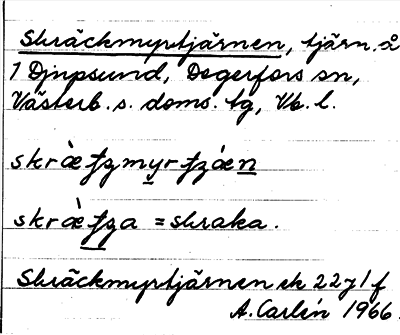 Skräckmyrtjärnen, tjärn å
1 Djupsund, Degerfors sn,
Västerb. s. doms. tg, Vb. l.
skræ̀ʄʒmyrʄʒǽn
skræ̀ʄʒa = skraka.
Skräckmyrtjärnen ek 22 J 1 f
A. Carlén 1966.